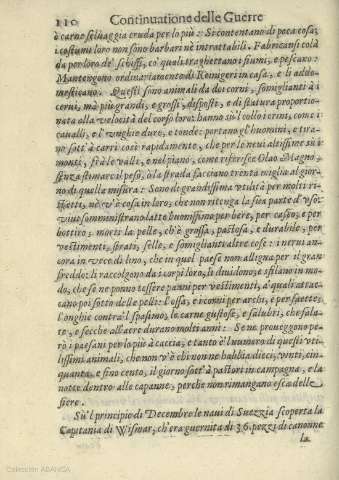 110 Continuatione delle Guerre
è carne seluaggia cruda per lo più: Si contentano di poca cosa;
i costumi loro non sono barbari nè intrattabili. Fabricansi colà
da per loro de' schiffi, co' quali traghettano i fiumi, e pescano:
Mantengono ordinariamento di Reingeri in casa, e li addo-
mesticano. Questi sono animali da doi corni, somiglianti à i
cerui, mà più grandi, e grossi, disposti, e di statura proportio-
nata alla velocità del corso loro: hanno sù'l collo i crini, come i
caualli, e l'vnghie dure, e tonde: portano gl'huomini, e tira-
no sott'à carri così rapidamente, che per le neui altissime sù i
monti, frà le valli, e nel piano, come riferisce Olao Magno,
senza stimare il peso, ò la strada faceano trenta miglia al gior-
no di quella misura: Sono di grandissima vtilità per molti ri-
spetti, nè v'è cosa in loro, che non ritenga la sua parte d'vso:
viui somministrano latte buonissimo per bere, per cascio, e per
bottiro; morti la pelle, ch'è grossa, pastosa, e durabile, per
vestimenti, strato, selle, e somiglianti altre cose: i nerui an-
cora in vece di lino, che in quel paese non alligna per il gran
freddo: li raccolgono da i corpi loro, li diuidono, e sfilano in mo-
do, che se ne ponno tessere panni per vestimenti, à quali attac-
cano poi sotto delle pelli: l'ossa, e i corni per archi, e per saette;
l'onghie contra'l spasimo; le carne gustose, e salubri, che sala-
te, e secche all'aere durano molti anni: Se ne proueggono pe-
rò i paesani per lo più à caccia, e tanto è l'numero di questi vti-
lissimi animali, che non v'è chi non ne habbia dieci, vinti, cin-
quanta, e fino cento, il giorno sott'à pastori in campagna, e la
notte dentro alle capanne, perche non rimangano esca delle
fiere.
Sù'l principio di Decembre le naui di Suezzia scoperta la
Capitania di Wismar, ch'era guernita di 36. pezzi di canone
la
Colección ABANCA